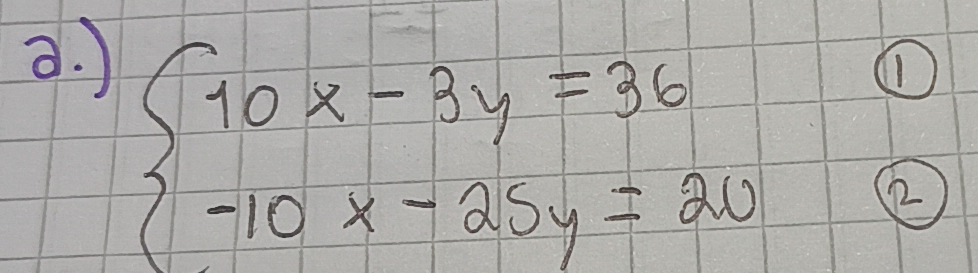 a.) 10x - 3y = 36 ①
-10x - 25y = 20 ②